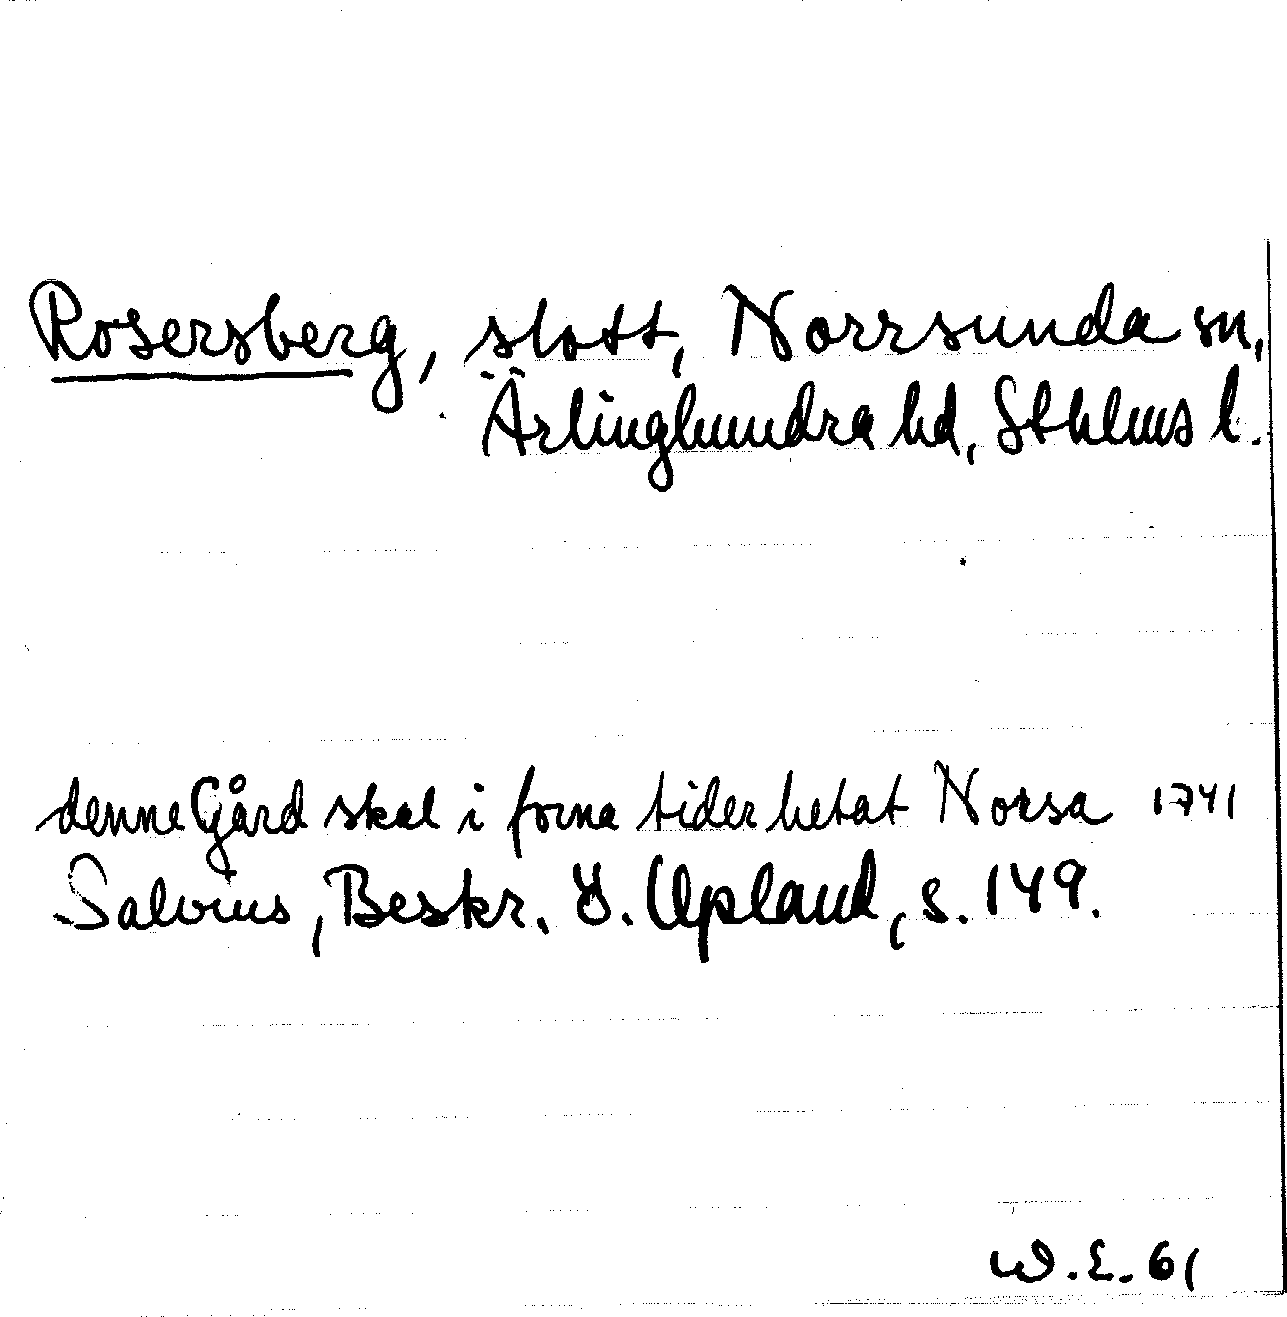 Rosersberg, slott, Norrsunda sn,
Ärlinghundra hd, Sthlms l.
denne Gård skal i forna tider hetat Norsa 1741
Salvius, Beskr. ö. Upland, s. 149.
W. E. 61